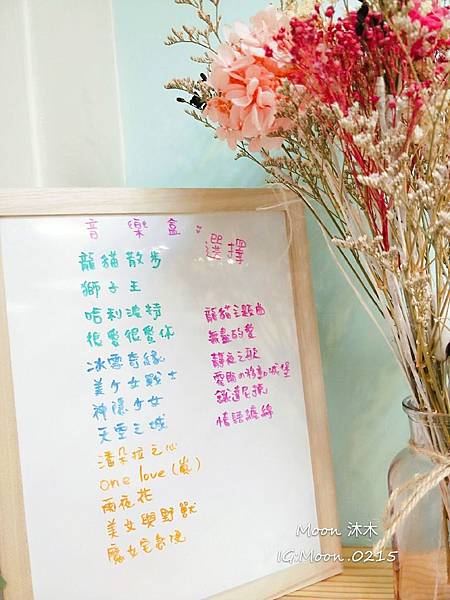 音樂盒
選擇
龍貓散步
獅子王
哈利波特
很愛很愛你
冰雪奇緣
美少女戰士
神隱少女
天空之城
潘朵拉之心
one love (嵐)
雨夜花
美女與野獸
魔女宅急便
龍貓主題曲
無盡的愛
靜夜之歌
霍爾の移動城堡
鐵達尼號
情話綿綿
Moon 沐木
IG:Moon.0215